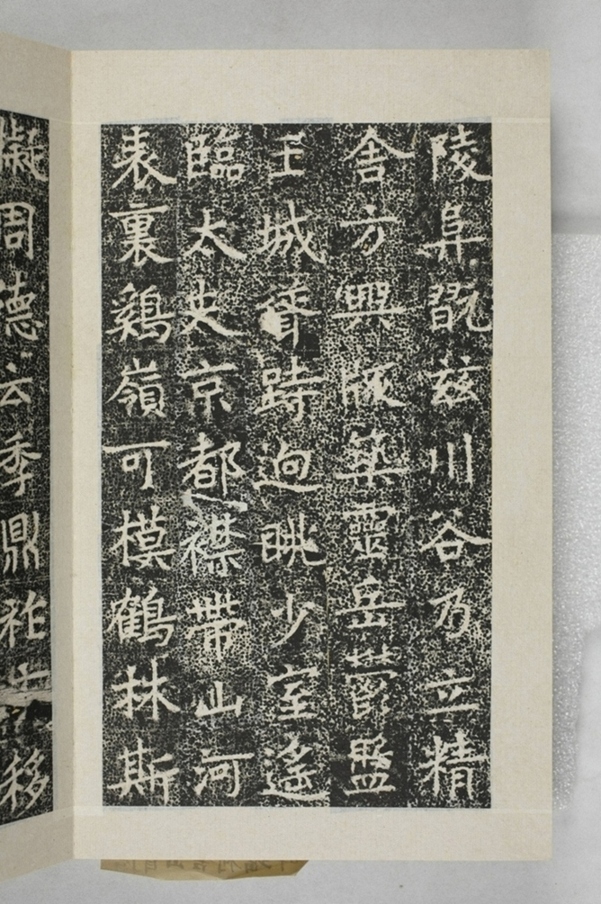 陵阜既兹川谷乃立精
舍方興版築靈岳鬱盤
王城聳跱迥眺少室遙
臨太史京都襟帶山河
表裏鷄嶺可模鶴林斯
擬周德云季鼎祚移